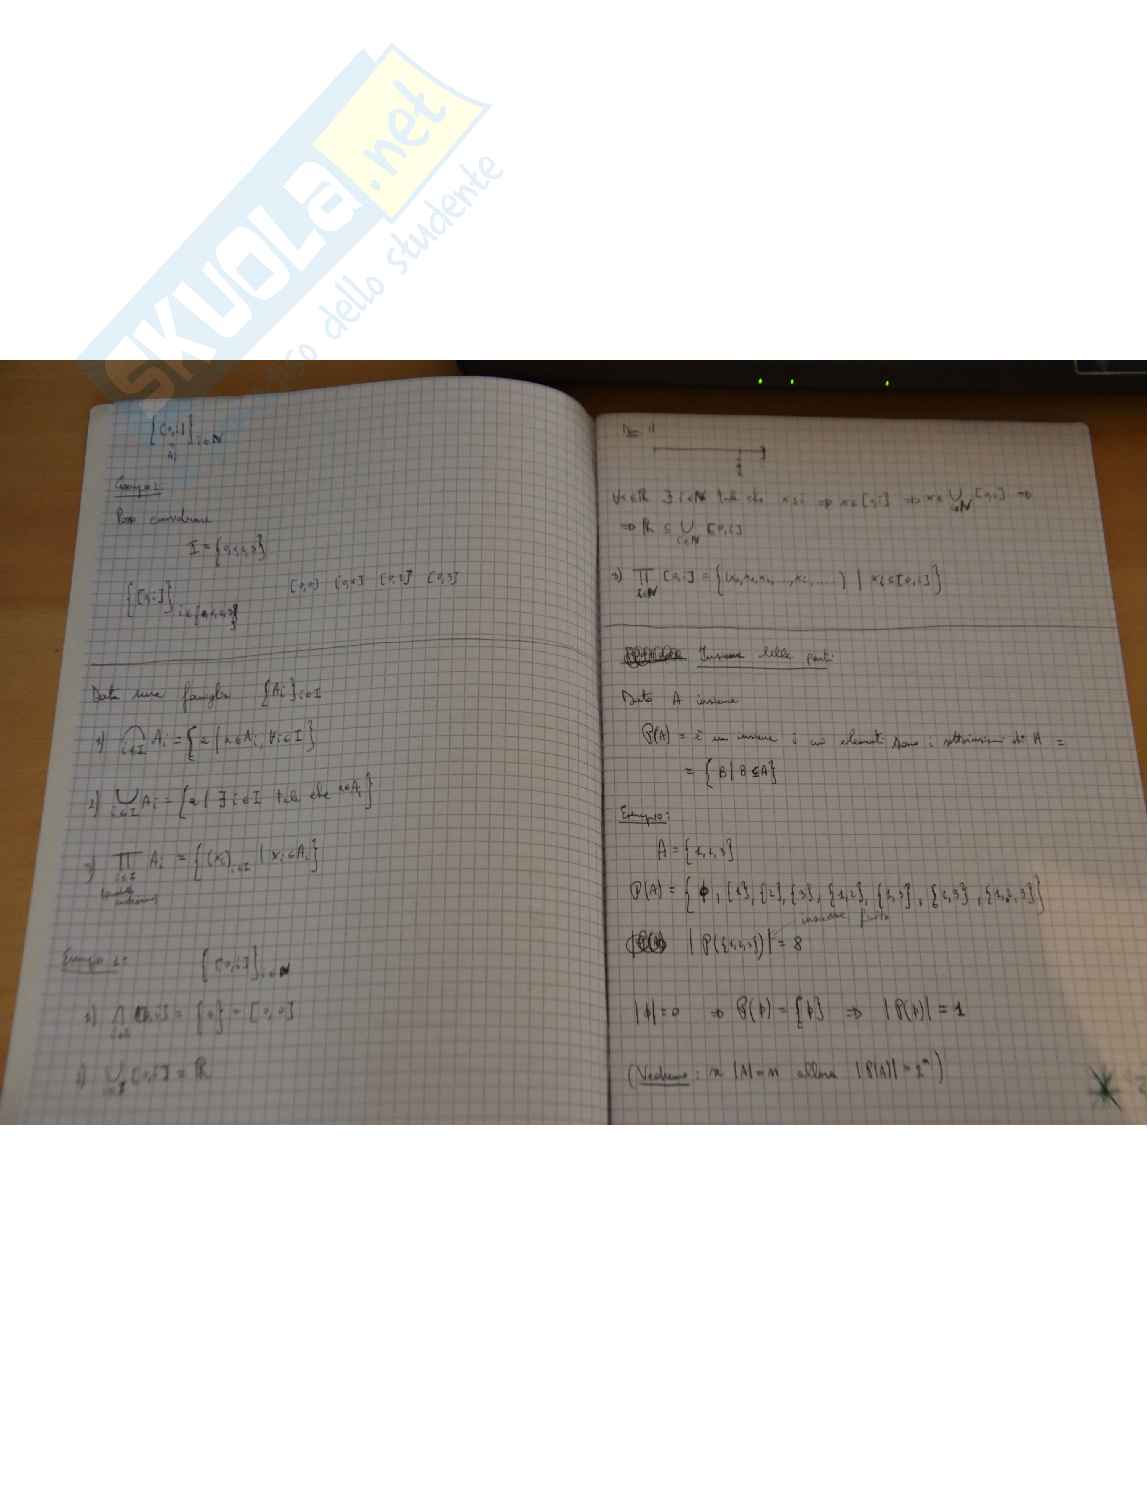 SKUOLa.net
dello studente
{[0,i]}i∈ℕ
Ai
Esempio:
Posso considerare
I = {0,1,2,3}
{[0,i]}i∈{0,1,2,3} [0,0] [0,1] [0,2] [0,3]
Data una famiglia {Ai}i∈I
1) ⋂i∈I Ai = {a | a∈Ai, ∀i∈I}
2) ⋃i∈I Ai = {a | ∃ i∈I tale che a∈Ai}
3) ∏i∈I Ai = {(xi)i∈I | xi∈Ai}
prodotto cartesiano
Esempio 1: {[0,i]}i∈ℕ
1) ⋂i∈I [0,i] = {0} = [0,0]
2) ⋃i∈I [0,i] = ℝ
∀x∈ℝ ∃ i∈ℕ tale che x≤i ⇒ x∈[0,i] ⇒ x∈⋃i∈ℕ [0,i] ⇒
⇒ ℝ ⊆ ⋃i∈ℕ [0,i]
3) ∏i∈ℕ [0,i] = {(x0,x1,x2,...,xi,...) | xi∈[0,i]}
Insieme delle parti:
Dato A insieme
P(A) = è un insieme i cui elementi sono i sottoinsiemi di A =
= {B | B⊆A}
Esempio:
A = {1,2,3}
P(A) = {ϕ, {1}, {2}, {3}, {1,2}, {1,3}, {2,3}, {1,2,3}}
insieme finito
|P({1,2,3})| = 8
|ϕ| = 0 ⇒ P(ϕ) = {ϕ} ⇒ |P(ϕ)| = 1
(Vedremo: se |A| = n allora |P(A)| = 2ⁿ)